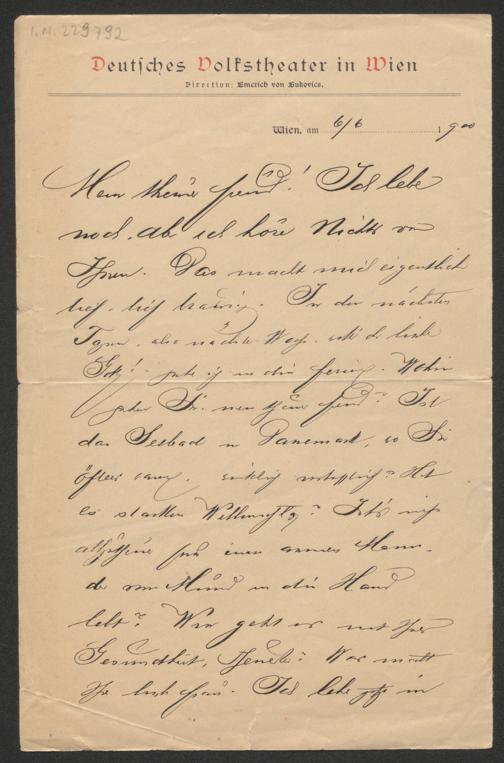 I.N. 229792
Deutsches Volkstheater in Wien
Direction: Emerich von Bukovics.
Wien, am 6/6 1900
Mein theurer Freund! Ich lebe
noch, aber ich höre Nichts von
Ihnen. Das macht mich eigentlich
tief, tief traurig. In den nächsten
Tagen, also nächste Woche, will der liebe
Gott! gehe ich in die Ferien. Wohin
gehen Sie, mein theurer Freund? Ist
das Seebad in Dänemark, wo Sie
öfters waren, wirklich vortrefflich? Hat
es starken Wellenschlag? Ist's nicht
allzutheuer für einen armen Mann,
der vom Mund in die Hand
lebt? Wie geht es mit Ihrer
Gesundheit, Was macht
Ihre liebe Frau. Ich lebe jetzt in